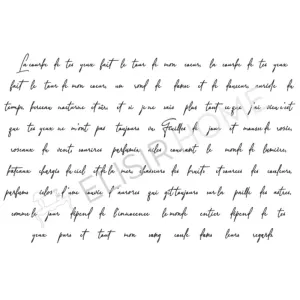 La courbe de tes yeux fait le tour de mon coeur, la courbe de tes yeux
fait le tour de mon coeur, un rond de danse et de douceur, auréole du
temps, berceau nocturne et sûr, et si je ne sais plus tout ce que j'ai vécu c'est
que tes yeux ne m'ont pas toujours vu Feuilles de jour et mousse de rosée,
roseaux du vent, sourires parfumés, ailes couvrant le monde de lumière,
bateaux chargés du ciel et de la mer, chasseurs des bruits et sources des couleurs,
parfums éclos d'une couvée d'aurores qui gît toujours sur la paille des astres,
comme le jour dépend de l'innocence le monde entier dépend de tes
yeux purs et tout mon sang coule dans leurs regards
ELISIR HOME